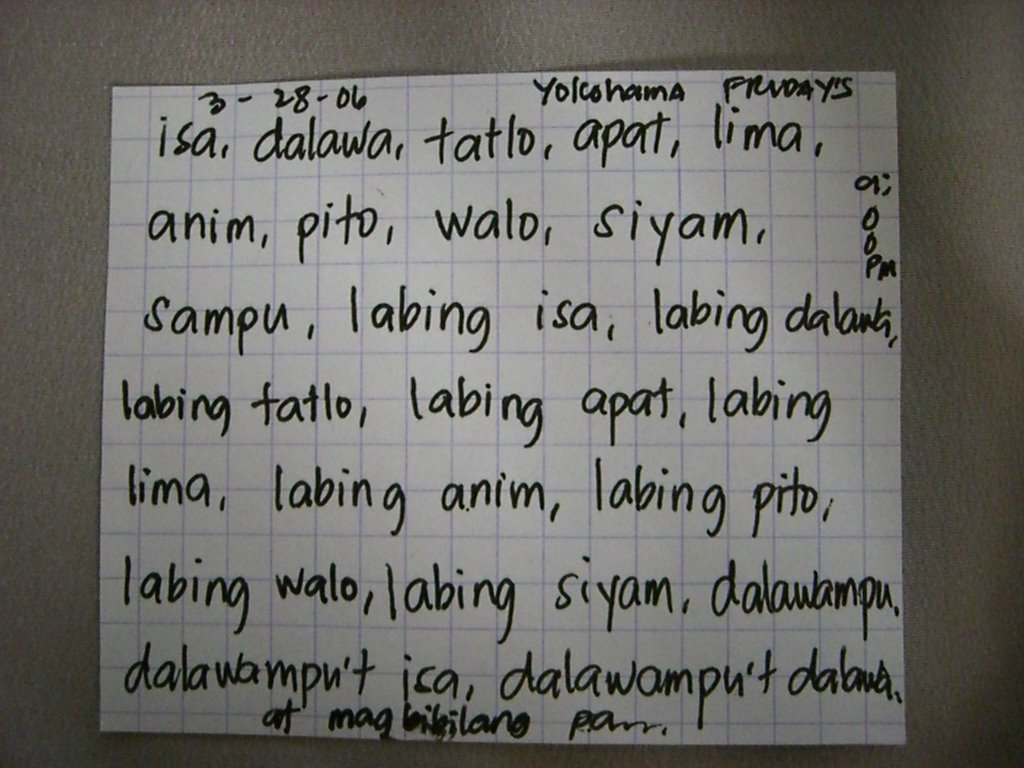 3-28-06 Yokohama FRIDAY'S
isa, dalawa, tatlo, apat, lima,
anim, pito, walo, siyam,
9:
0
0
PM
sampu, labing isa, labing dalawa,
labing tatlo, labing apat, labing
lima, labing anim, labing pito,
labing walo, labing siyam, dalawampu,
dalawampu't isa, dalawampu't dalawa,
at mag bibilang